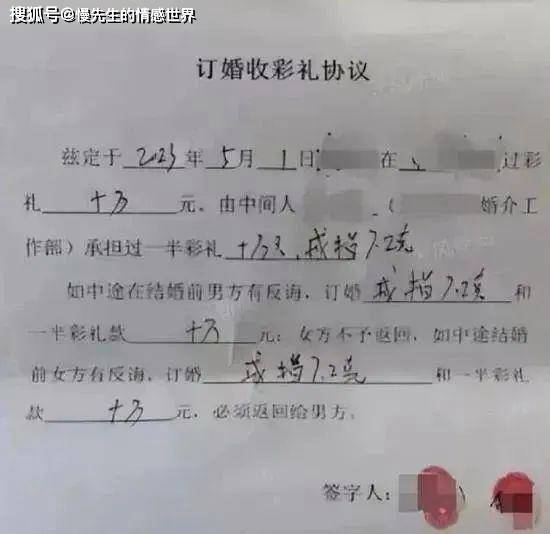 搜狐号@慢先生的情感世界
订婚收彩礼协议
兹定于 2023 年 5 月 1 日 在 过彩
礼 十万 元，由中间人 （ 婚介工
作部）承担过一半彩礼 十万元，戒指7.2克
如中途在结婚前男方有反海，订婚 戒指7.2克 和
一半彩礼款 十万 元；女方不予返回，如中途结婚
前女方有反海，订婚 戒指7.2克 和一半彩礼
款 十万 元，必须返回给男方。
签字人：